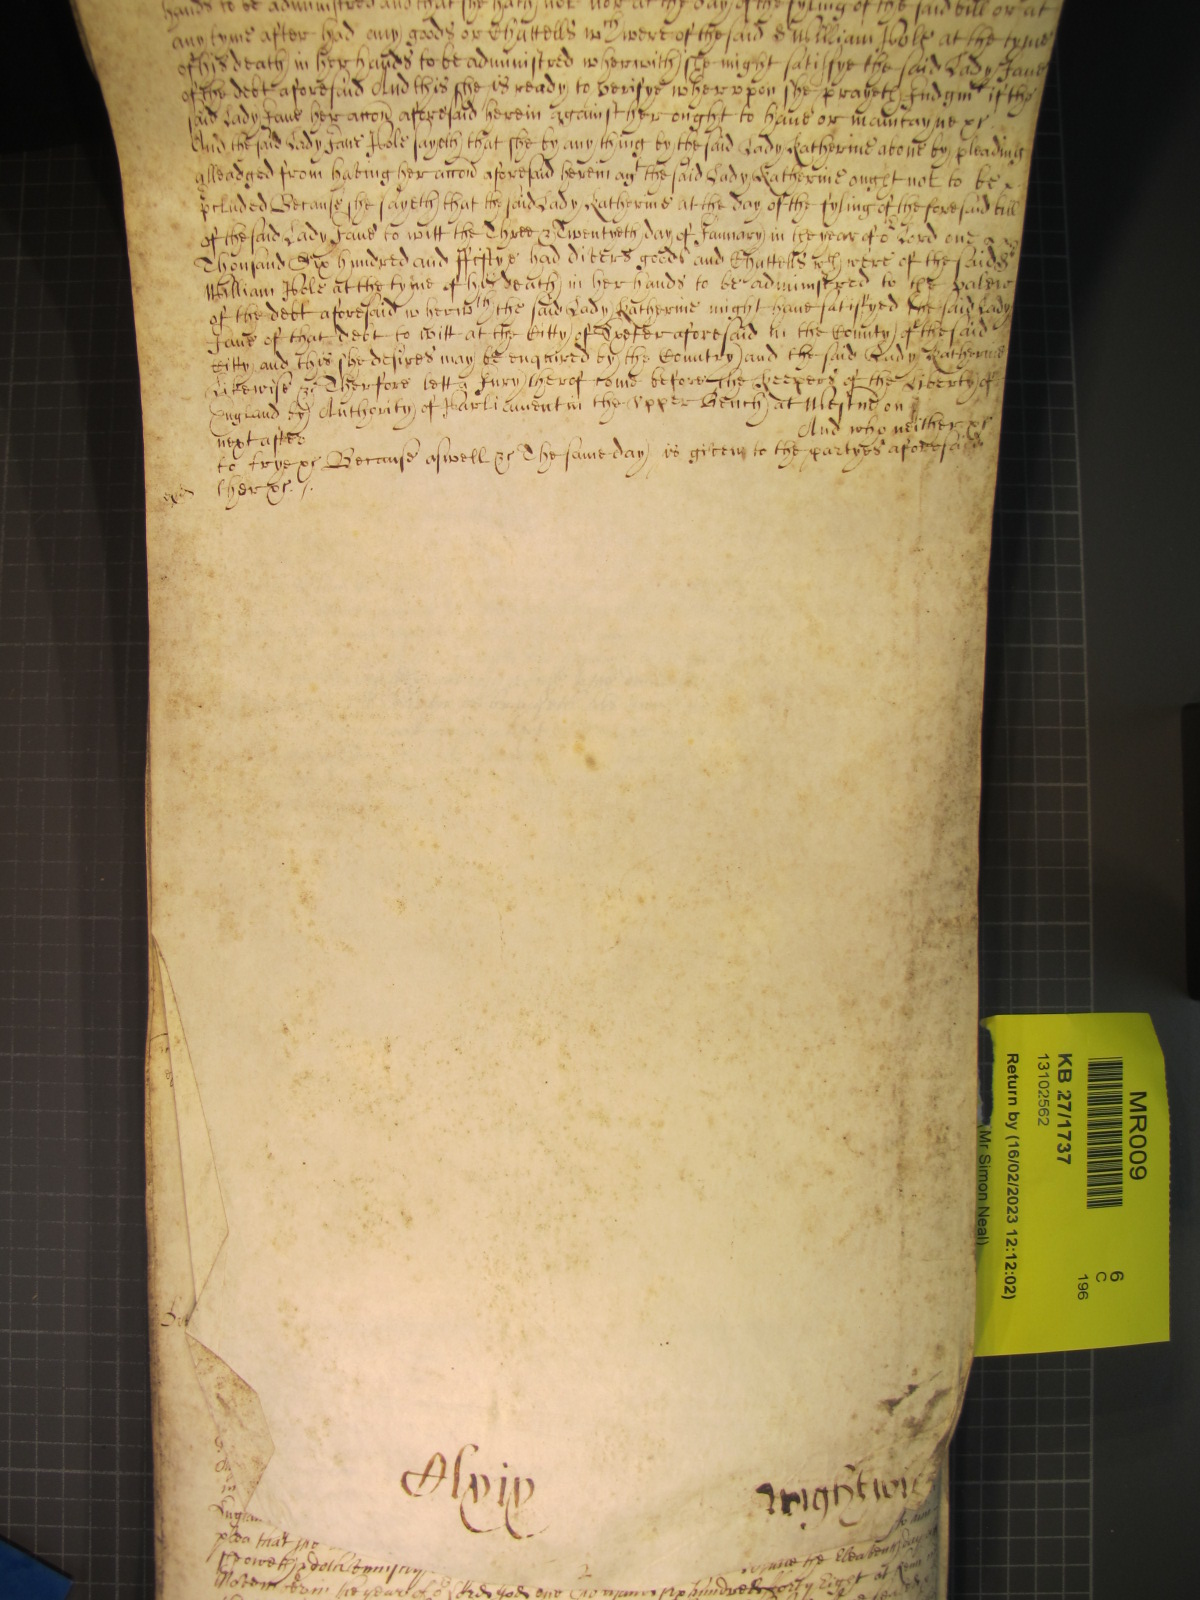 hands to be administred and that she hath not nor at the day of the fyling of the said bill or at
any tyme after had any goods or Chattells wch were of the said S William Pole at the tyme
of his death in her hands to be administred wherwith she might satisfye the said Lady Jane
of the debt aforesaid And this she is ready to verifye wherupon she prayeth Judgmt if the
said Lady Jane her accon aforesaid herein against her ought to have or maintayne &c
And the said Lady Jane Pole sayeth that she by any thing by the said Lady Katherine above by pleading
alleadged from having her accon aforesaid herein agt the said Lady Katherine ought not to be
pcluded Because she sayeth that the said Lady Katherine at the day of the fyling of the foresaid bill
of the said Lady Jane to witt the Three & Twentyeth day of January in the year of or Lord one
Thousand Six hundred and fiftye had divers goods and Chattells wch were of the said S
William Pole at the tyme of his death in her hands to be administered to the valew
of the debt aforesaid wherwth the said Lady Katherine might have satisfyed the said Lady
Jane of that debt to witt at the Citty of Exeter aforesaid in the County of the said
Citty and this she desires may be enquired by the Country and the said Lady Katherine
Likewise &c Therfore lett a Jury therof come before the Keepers of the Liberty of
England by Authority of Parliament in the Upper Bench at Westmr on
next after And who neither &c
to trye &c Because aswell &c The same day is given to the partyes aforesaid
ther &c
Wrightwic
Englan
plea that
November in the yeare of or Lord God one Thousand six hundred forty Eight at
MR009
KB 27/1737
13102562
Return by (16/02/2023 12:12:02)
Mr Simon Neal)
6
C
196